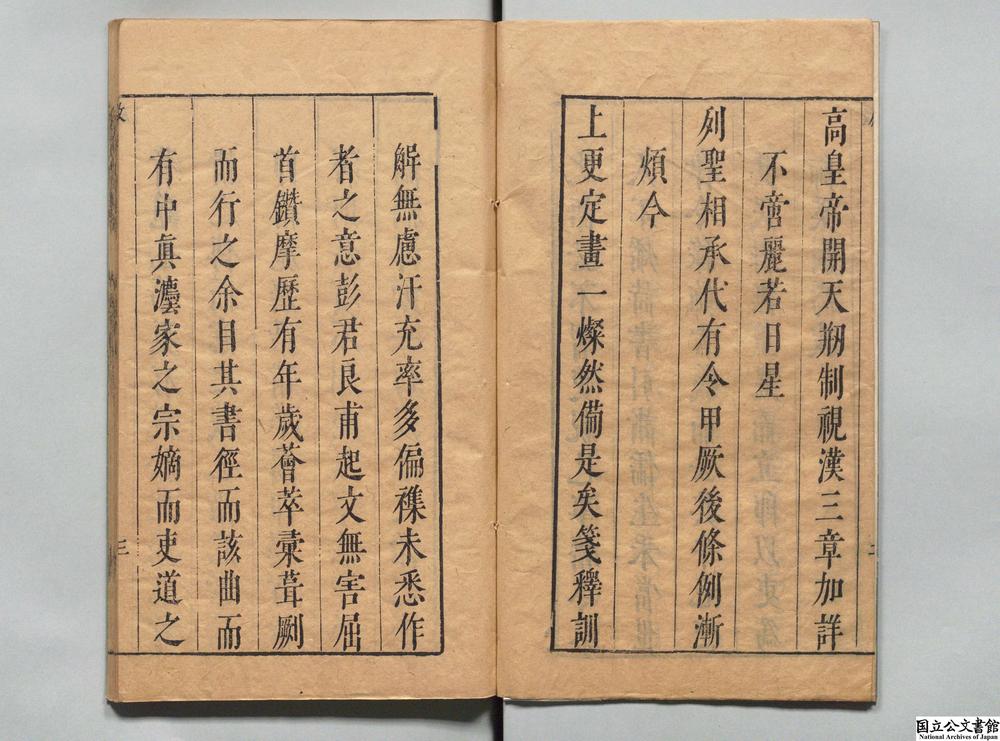 高皇帝開天刱制視漢三章加詳
不啻麗若日星
列聖相承代有令甲厥後條例漸
煩今
上更定畫一燦然備是矣箋釋訓
解無慮汗充率多偏襍未悉作
者之意彭君良甫起文無害屈
首鑽摩歷有年歲薈萃彙葺劂
而行之余目其書徑而該曲而
有中真灋家之宗嫡而吏道之
三
国立公文書館
National Archives of Japan